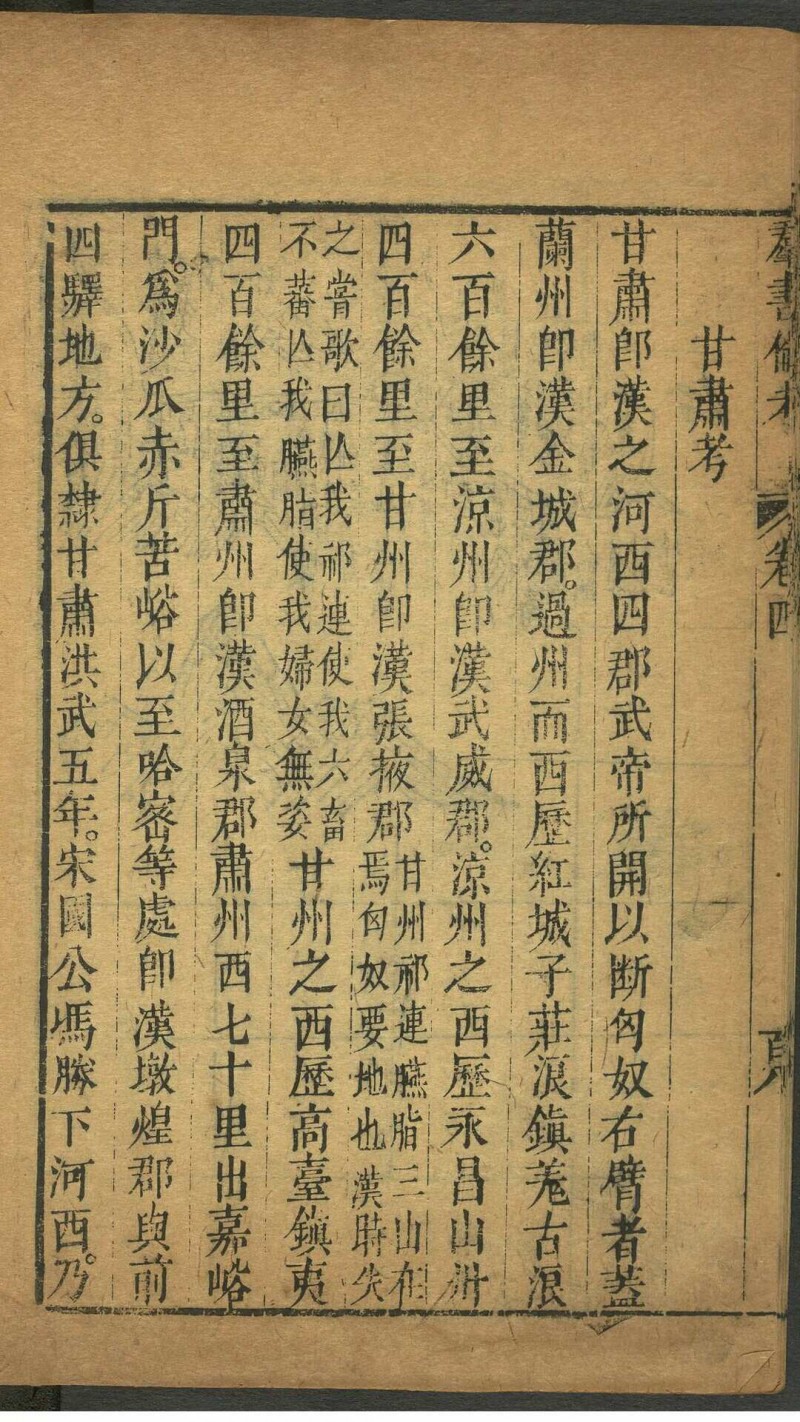 羣書備考
卷四
甘肅考
甘肅卽漢之河西四郡武帝所開以斷匈奴右臂者蓋
蘭州卽漢金城郡。過州而西歷紅城子莊浪鎮羌古浪
六百餘里至涼州卽漢武威郡。涼州之西歷永昌山丹
四百餘里至甘州卽漢張掖郡
甘州祁連臙脂三山在
焉匈奴要地也漢時失
之嘗歌曰亾我祁連使我六畜
不蕃亾我臙脂使我婦女無姿
甘州之西歷高臺鎮夷
四百餘里至肅州卽漢酒泉郡肅州西七十里出嘉峪
門。爲沙瓜赤斤苦峪以至哈密等處卽漢墩煌郡與前
四驛地方。俱隸甘肅洪武五年。宋國公馮勝下河西。乃